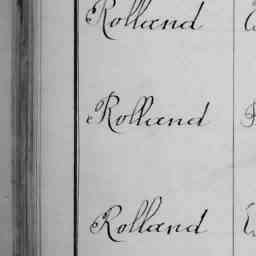 Rolland
Rolland
Rolland